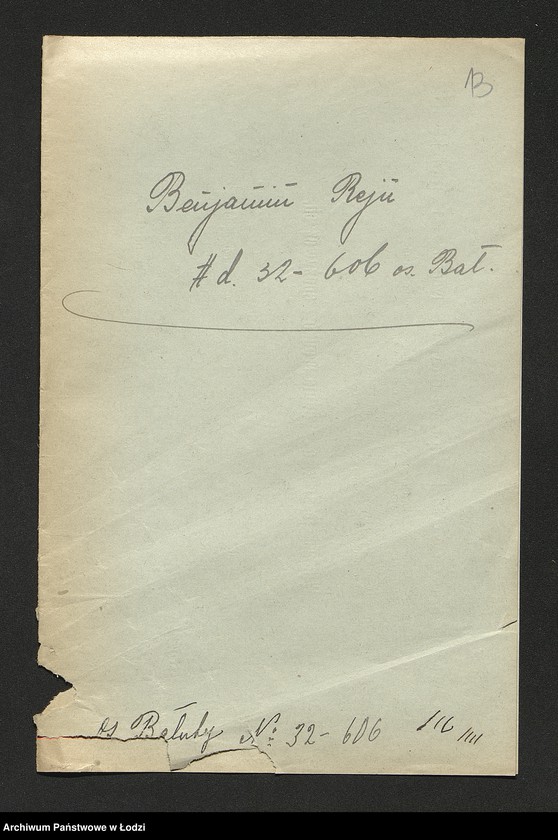 B
Benjamin Rejn
# d. 32-606 os. Bał.
os Bałuty № 32-606
Archiwum Państwowe w Łodzi